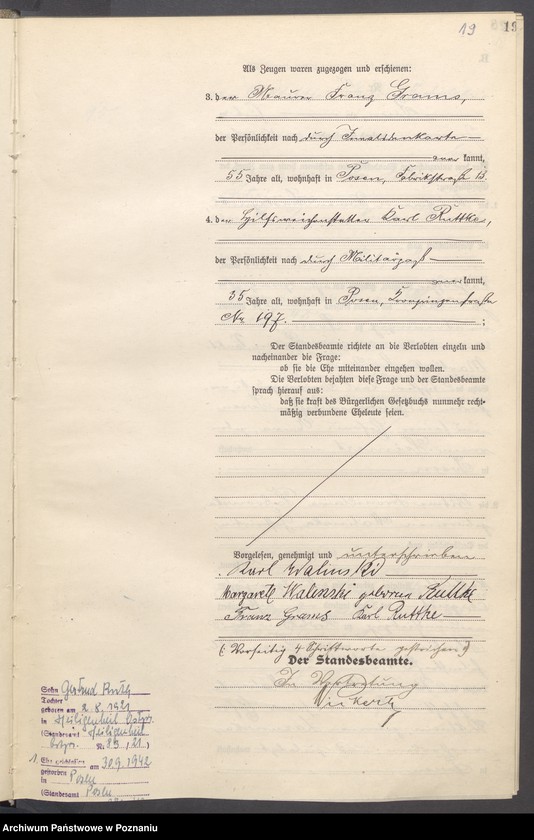 19
Als Zeugen waren zugezogen und erschienen:
3. der Maurer Franz Grams,
der Persönlichkeit nach durch Invalidenkarte
kannt,
55 Jahre alt, wohnhaft in Posen, Fabrikstraße 13.
4. der Hilfsweichensteller Karl Ruttke,
der Persönlichkeit nach durch Militärpaß
kannt,
35 Jahre alt, wohnhaft in Posen, Kronprinzenstraße
Nr. 197. ;
Der Standesbeamte richtete an die Verlobten einzeln und
nacheinander die Frage:
ob sie die Ehe miteinander eingehen wollen.
Die Verlobten bejahten diese Frage und der Standesbeamte
sprach hierauf aus:
daß sie kraft des Bürgerlichen Gesetzbuchs nunmehr recht-
mäßig verbundene Eheleute seien.
Vorgelesen, genehmigt und unterschrieben
Karl Walinski
Margarete Walinski geborene Ruttke
Franz Grams Karl Ruttke
(: Vorseitig 4 Schriftworte gestrichen :)
Der Standesbeamte.
In Vertretung
Sohn Gertrud Ruth
Tochter
geboren am 2.8.1921
in Heiligenbeil Ostpr.
(Standesamt Heiligenbeil
Ostpr. Nr. 89, 21)
1. Ehe geschlossen am 30.9.1942
gestorben
in Posen
(Standesamt Posen
Archiwum Państwowe w Poznaniu